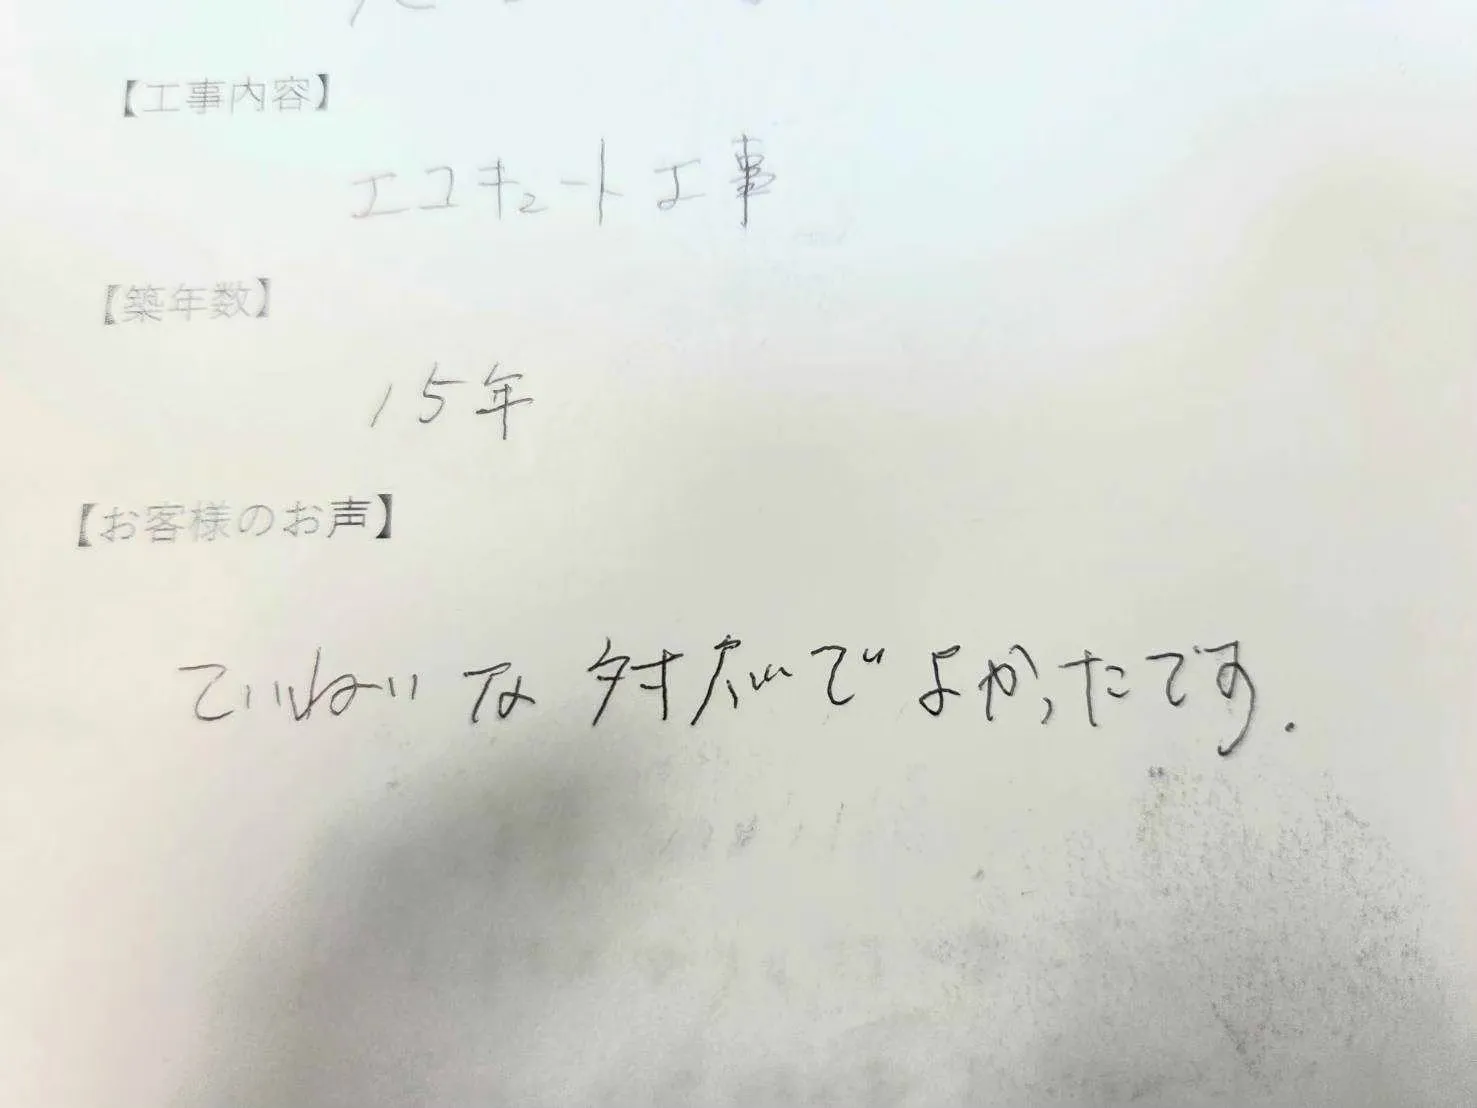 【工事内容】
エコキュート工事
【築年数】
15年
【お客様のお声】
ていねいな対応でよかったです.